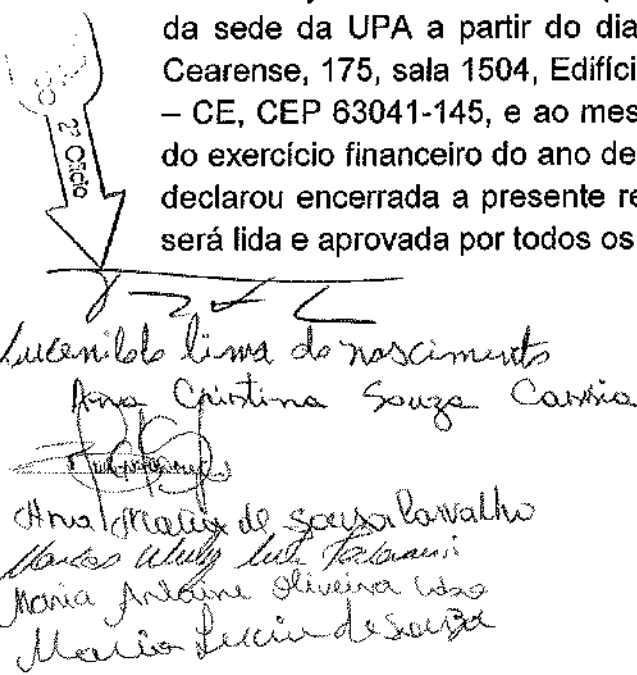 da sede da UPA a partir do dia
Cearense, 175, sala 1504, Edifíci
– CE, CEP 63041-145, e ao mes
do exercício financeiro do ano de
declarou encerrada a presente re
será lida e aprovada por todos os
2º Ofício
Lucenildo lima do nascimento
Ana Cristina Souza
Ana Maria de Sousa Carvalho
Maria Oliveira
Maria Lucia de Souza